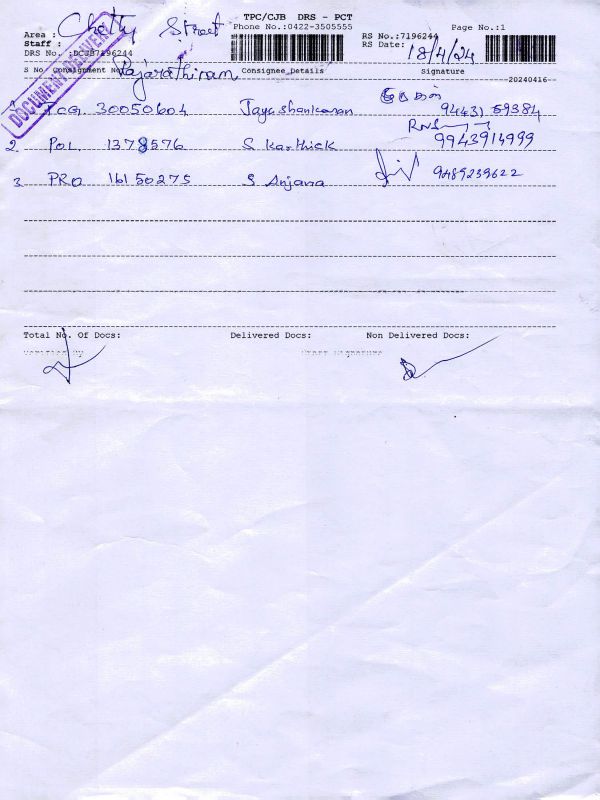 TPC/CJB DRS - PCT
Phone No.:0422-3505555
Page No.:1
Area : Chetty Street
Staff :
RS No.:7196244
RS Date: 18/4/24
DRS No. :DCJB7196244
DOCUMENT DELIVERY
S No Consignment No Consignee Details Signature
20240416
30050604 Jayashankaran 94431 59384
2. POL 1378576 S Karthick 9943914999
3 PRO 16150275 S Anjana 9489239622
Total No. Of Docs: Delivered Docs: Non Delivered Docs: